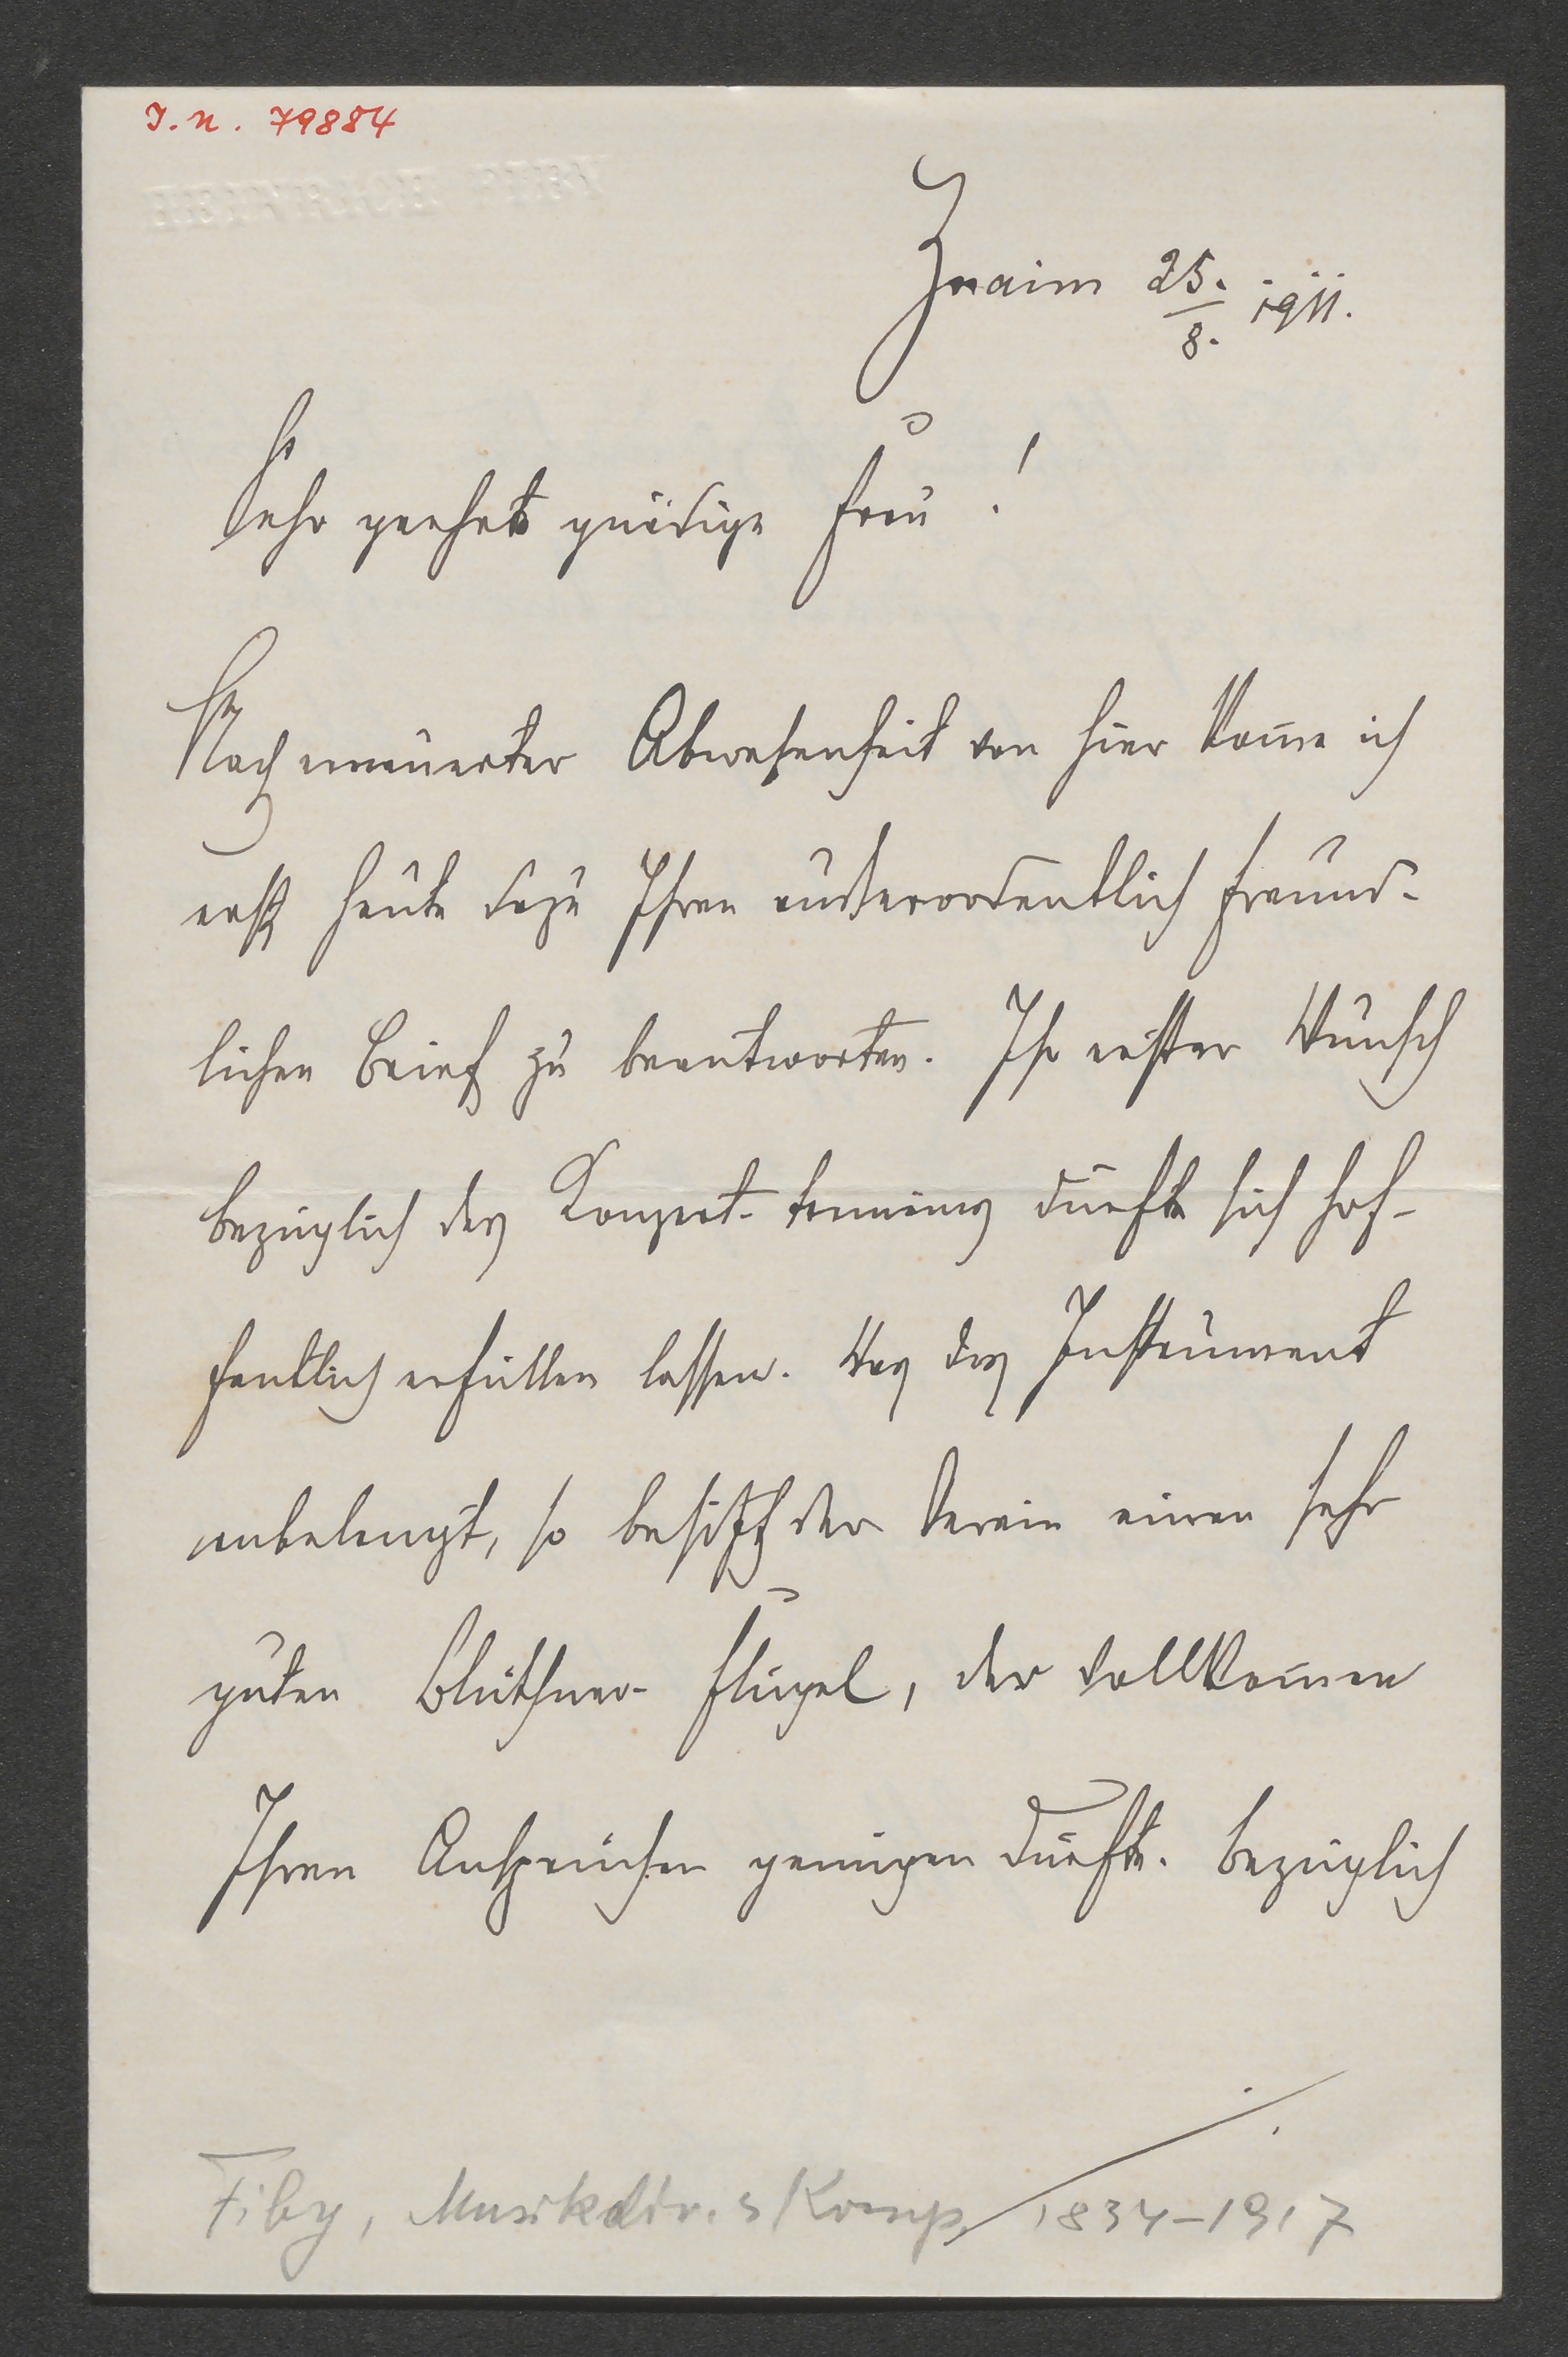 I.N. 79884
Znaim 25./8. 1911.
Sehr geehrte gnädige Frau!
Nach erneuerter Abwesenheit von hier kom̄e ich
erst heute dazu Ihren außerordentlich freund-
lichen Brief zu beantworten. Ihr erster Wunsch
bezüglich des Konzert-termins dürfte sich hof-
fentlich erfüllen lassen. Was das Instrument
anbelangt, so besitzt der Verein einen sehr
guten Blüthner-Flügel, der vollkom̄en
Ihren Ansprüchen genügen dürfte. Bezüglich
Fiby, Musikdir. u Komp. 1834-1917